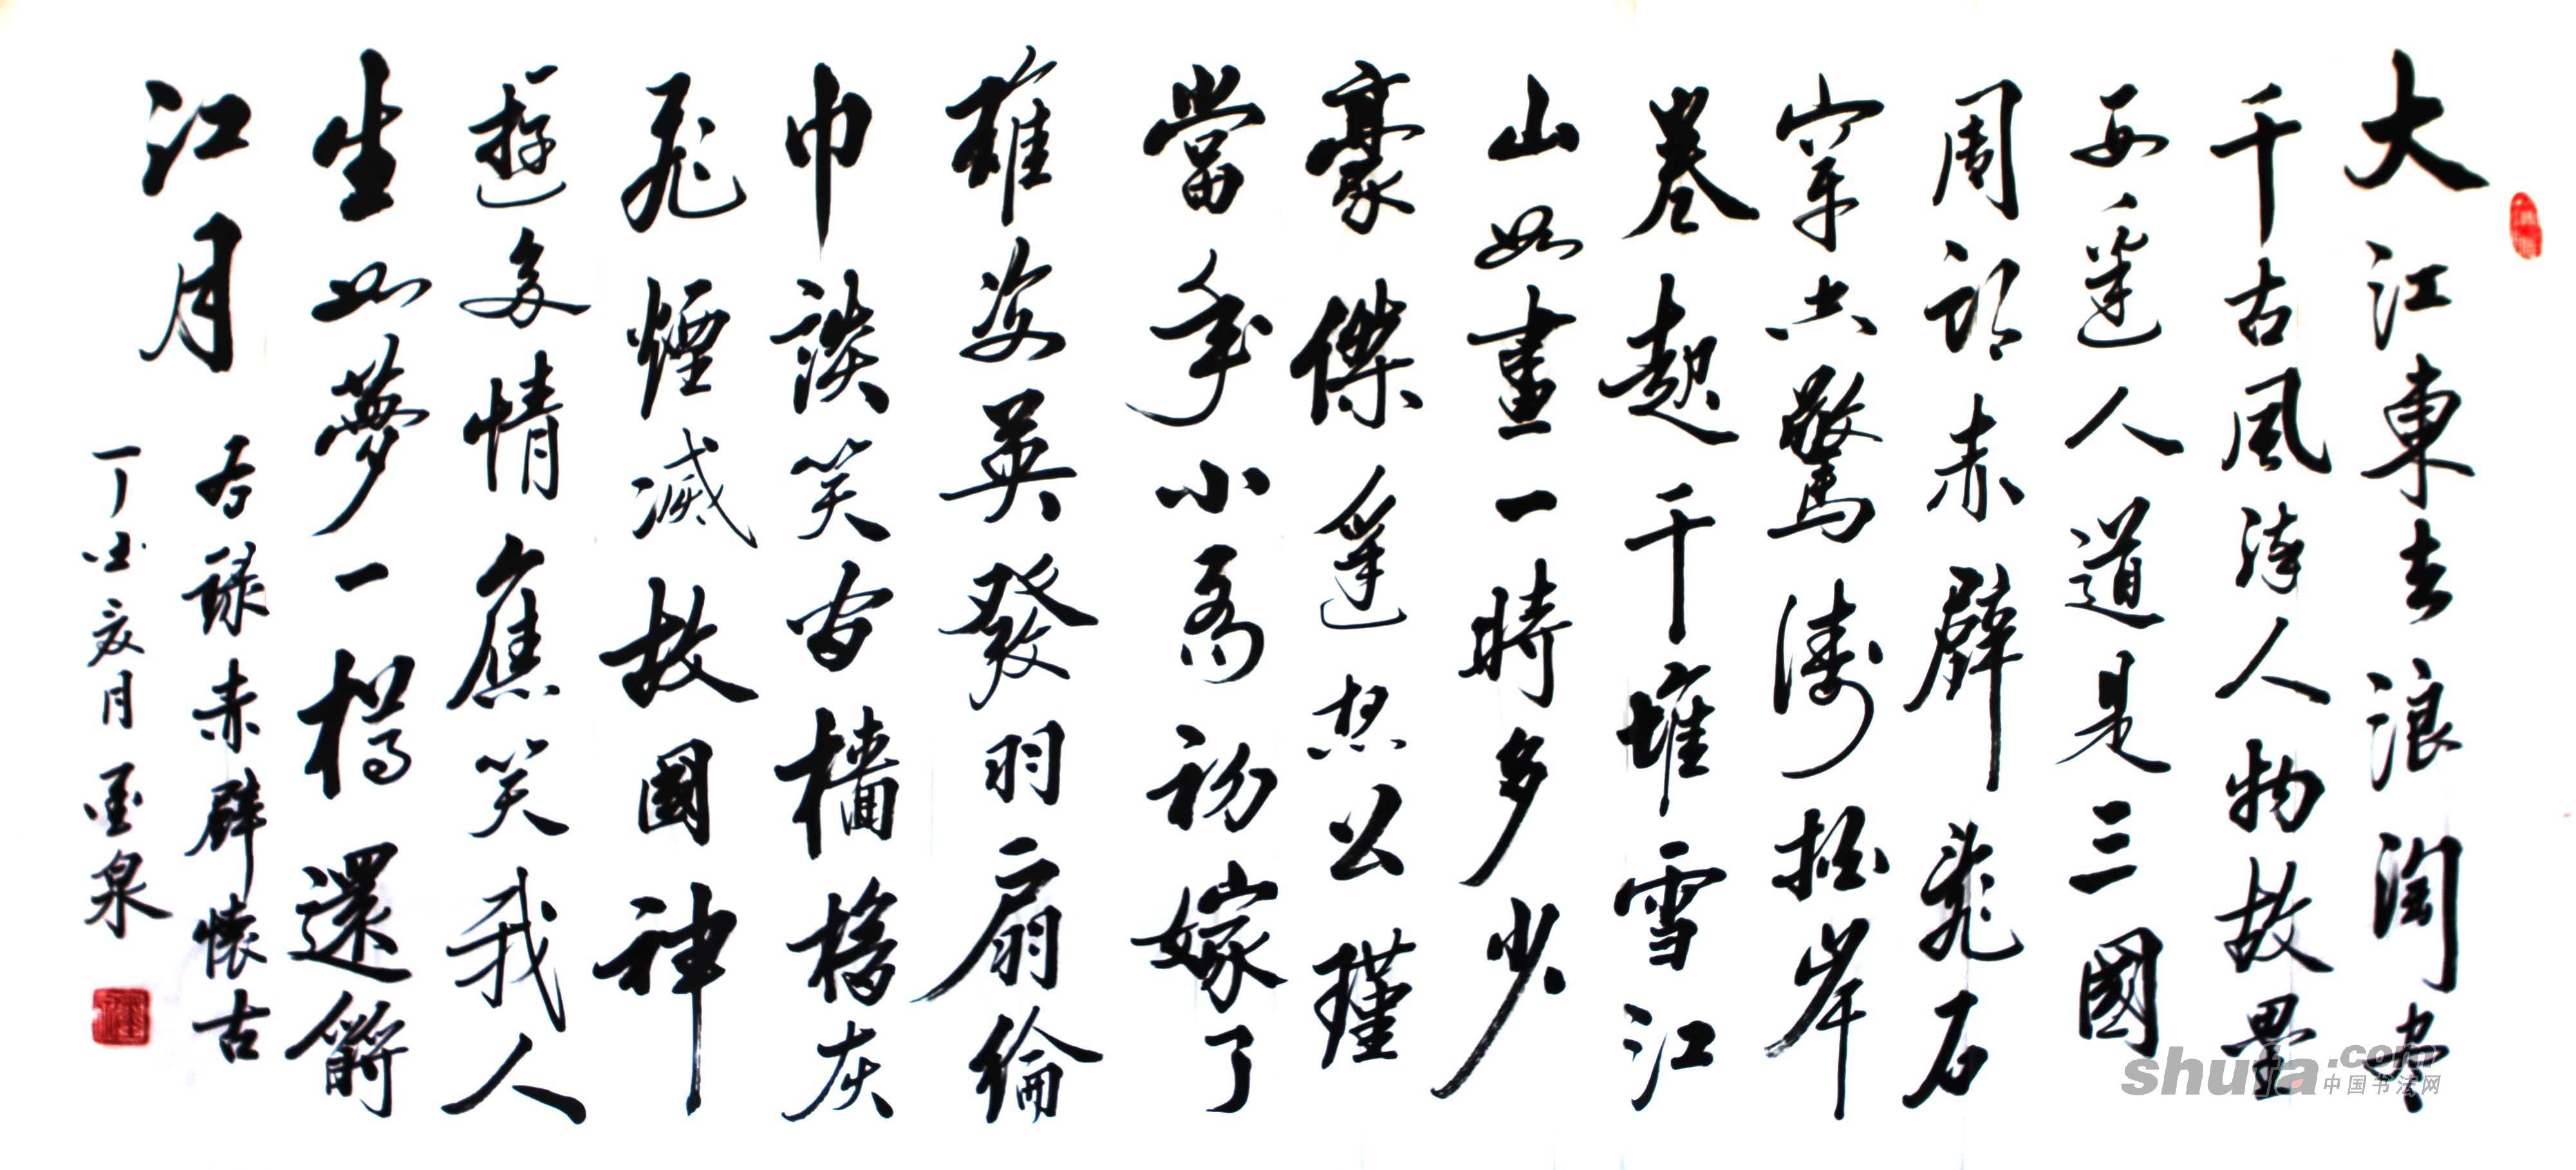 大江東去浪淘尽
千古風流人物故壘
西邊人道是三國
周郎赤壁亂石
穿空驚濤拍岸
卷起千堆雪江
山如畫一時多少
豪傑遥想公瑾
當年小喬初嫁了
雄姿英發羽扇綸
巾談笑间檣櫓灰
飛煙滅故國神
遊多情應笑我人
生如夢一樽還酹
江月
右録赤壁懷古
丁酉亥月 泉
shufa.com
中国书法网